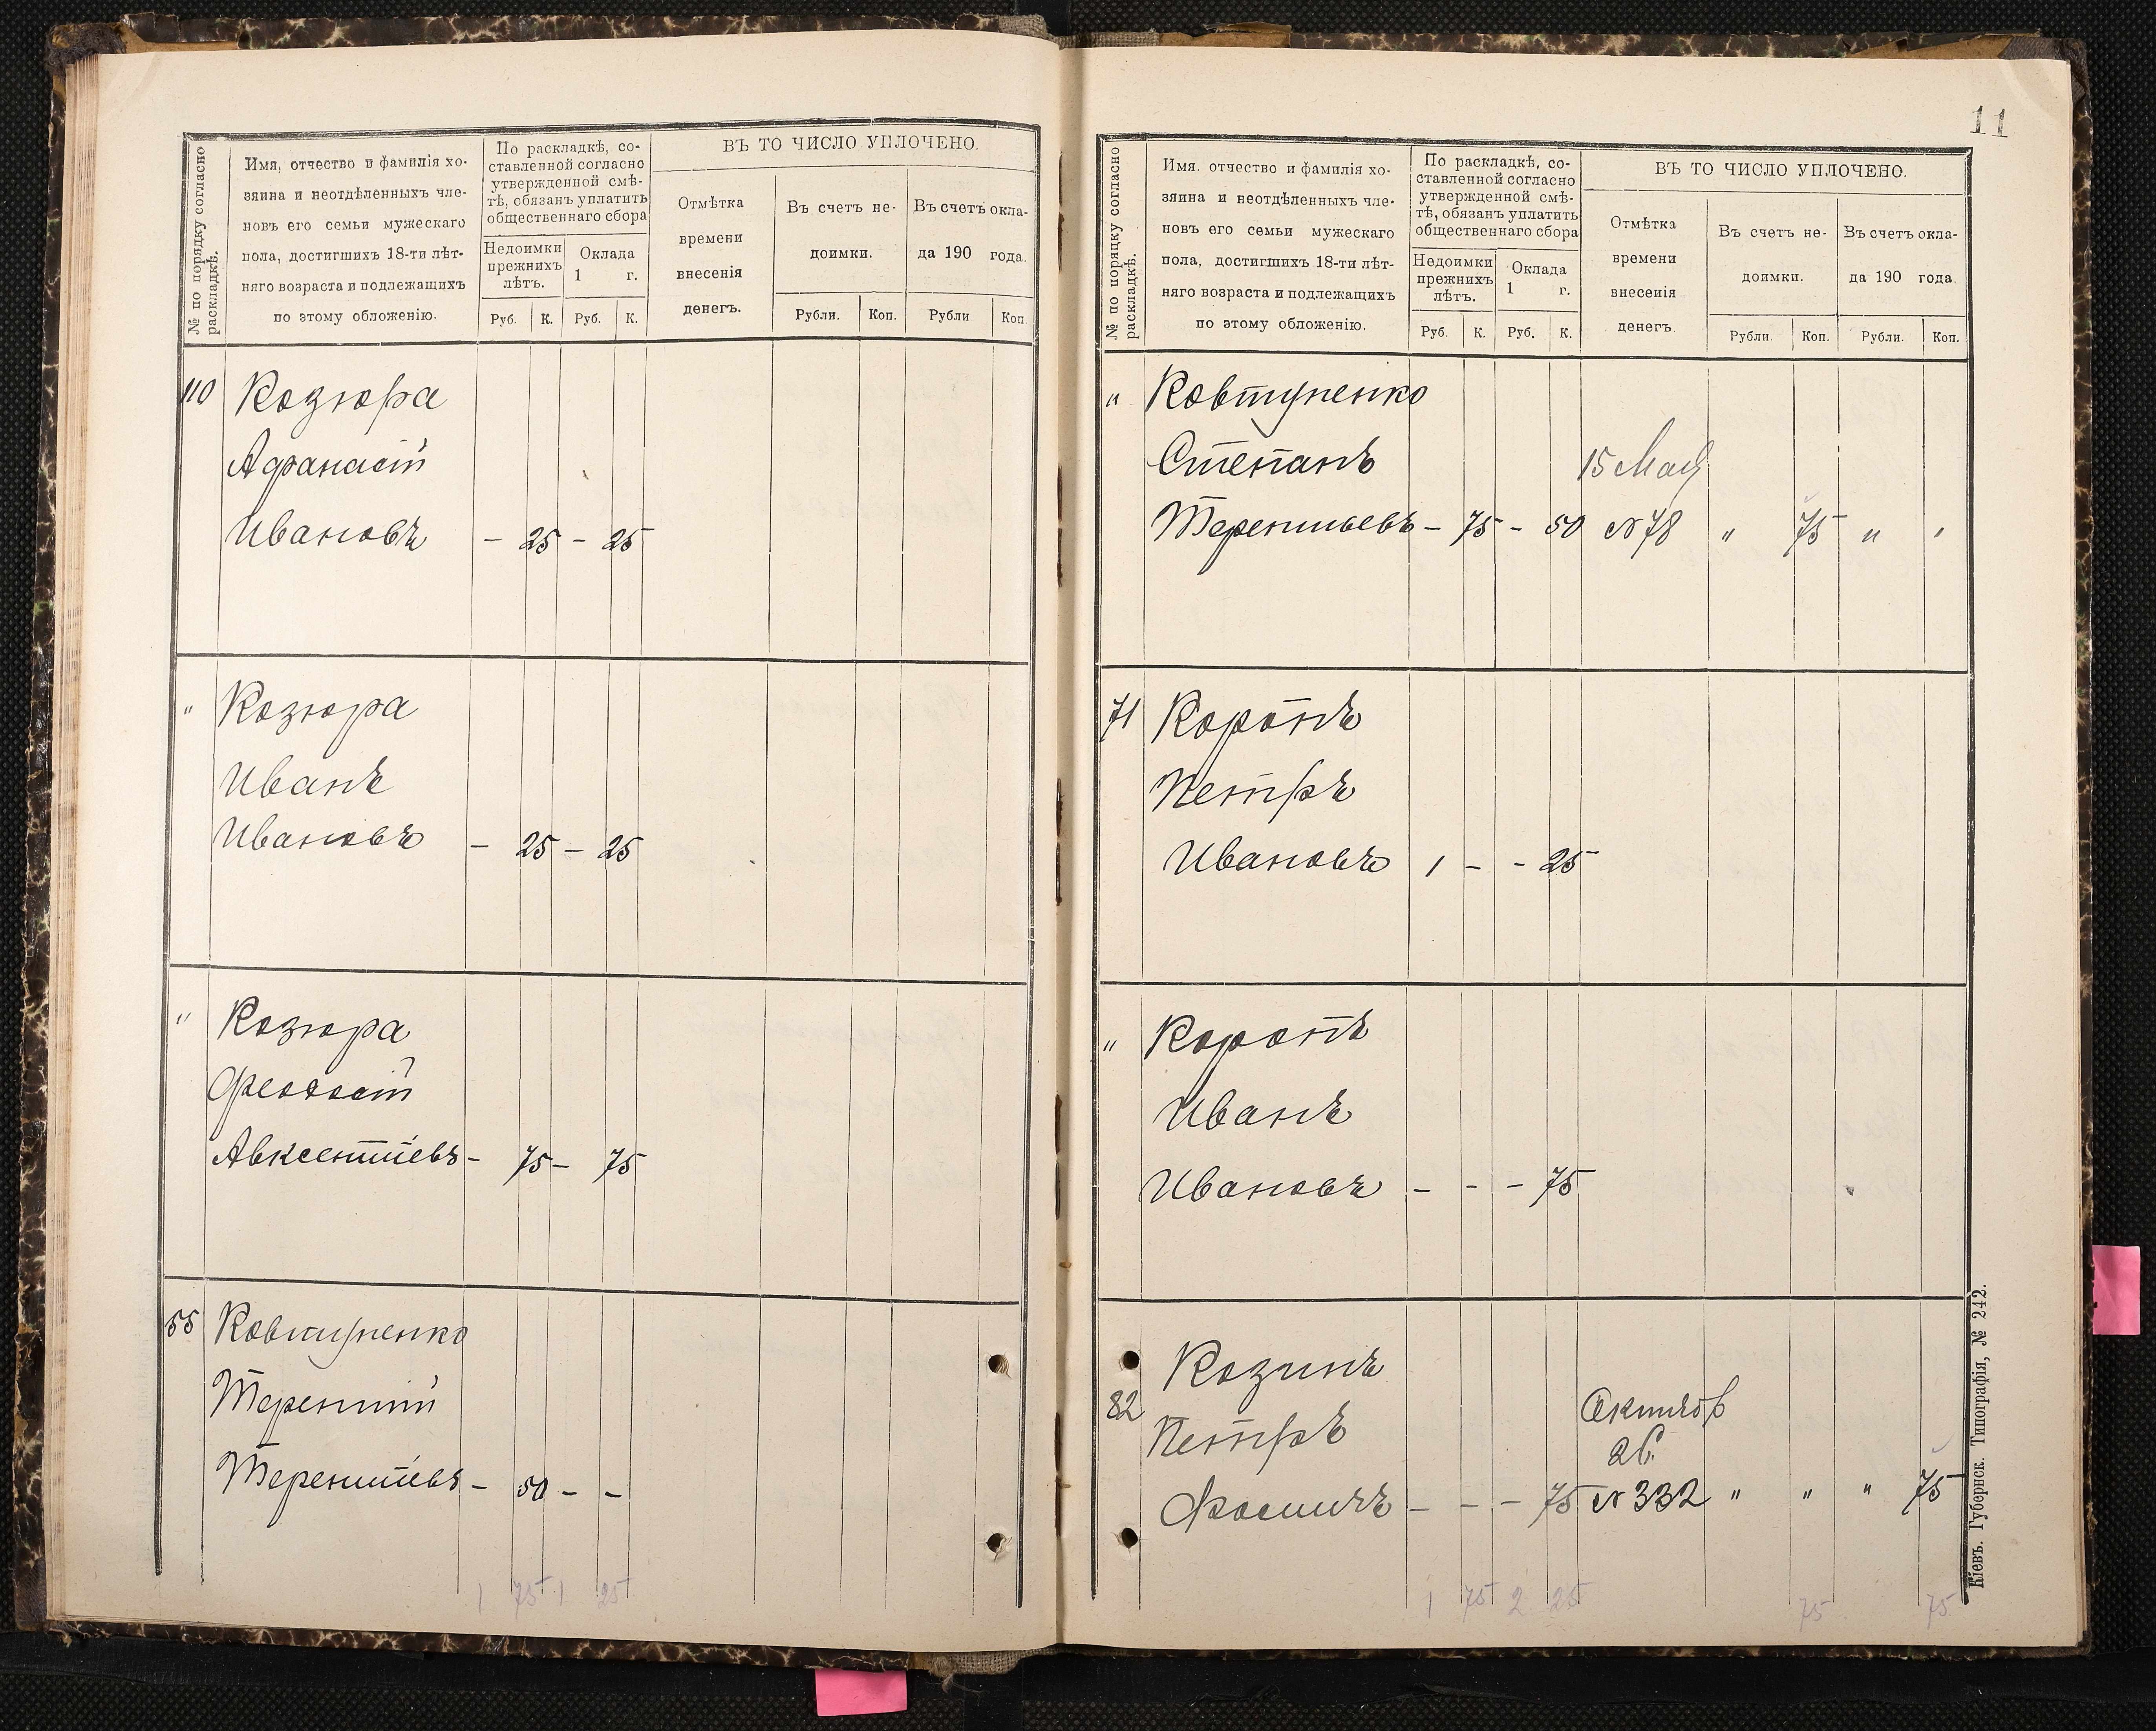 № по порядку согласно
раскладкѣ.
Имя, отчество и фамилія хо-
зяина и неотдѣленныхъ чле-
новъ его семьи мужескаго
пола, достигшихъ 18-ти лѣт-
няго возраста и подлежащихъ
по этому обложенію.
По раскладкѣ, со-
ставленной согласно
утвержденной смѣ-
тѣ, обязанъ уплатить
общественнаго сбора
Недоимки
прежнихъ
лѣтъ.
Оклада
1 г.
Руб. К. Руб. К.
ВЪ ТО ЧИСЛО УПЛОЧЕНО.
Отмѣтка
времени
внесенія
денегъ.
Въ счетъ не-
доимки.
Въ счетъ окла-
да 190 года.
Рубли. Коп. Рубли Коп.
110 Козюра
Афанасій
Ивановъ — 25 — 25
" Козюра
Иванъ
Ивановъ — 25 — 25
" Козюра
Феодосій
Авксентіевъ — 75 — 75
55 Ковтуненко
Терентій
Терентіевъ — 50 — —
1 75 1 25
11
№ по порядку согласно
раскладкѣ.
Имя. отчество и фамилія хо-
зяина и неотдѣленныхъ чле-
новъ его семьи мужескаго
пола, достигшихъ 18-ти лѣт-
няго возраста и подлежащихъ
по этому обложенію.
По раскладкѣ, со-
ставленной согласно
утвержденной смѣ-
тѣ, обязанъ уплатить
общественнаго сбора
Недоимки
прежнихъ
лѣтъ.
Оклада
1 г.
Руб. К. Руб. К.
ВЪ ТО ЧИСЛО УПЛОЧЕНО.
Отмѣтка
времени
внесенія
денегъ.
Въ счетъ не-
доимки.
Въ счетъ окла-
да 190 года.
Рубли. Коп. Рубли. Коп.
" Ковтуненко
Степанъ 15 Мая
Терентьевъ — 75 — 50 № 78 " 75 " "
71 Коропъ
Петръ
Ивановъ 1 — — 25
" Коропъ
Иванъ
Ивановъ — — — 75
Козинъ
82 Петръ Октябр
26
Фомичъ — — — 75 № 332 " " " 75
1 75 2 25 75 75
Кіевъ. Губернск. Типографія, № 242.